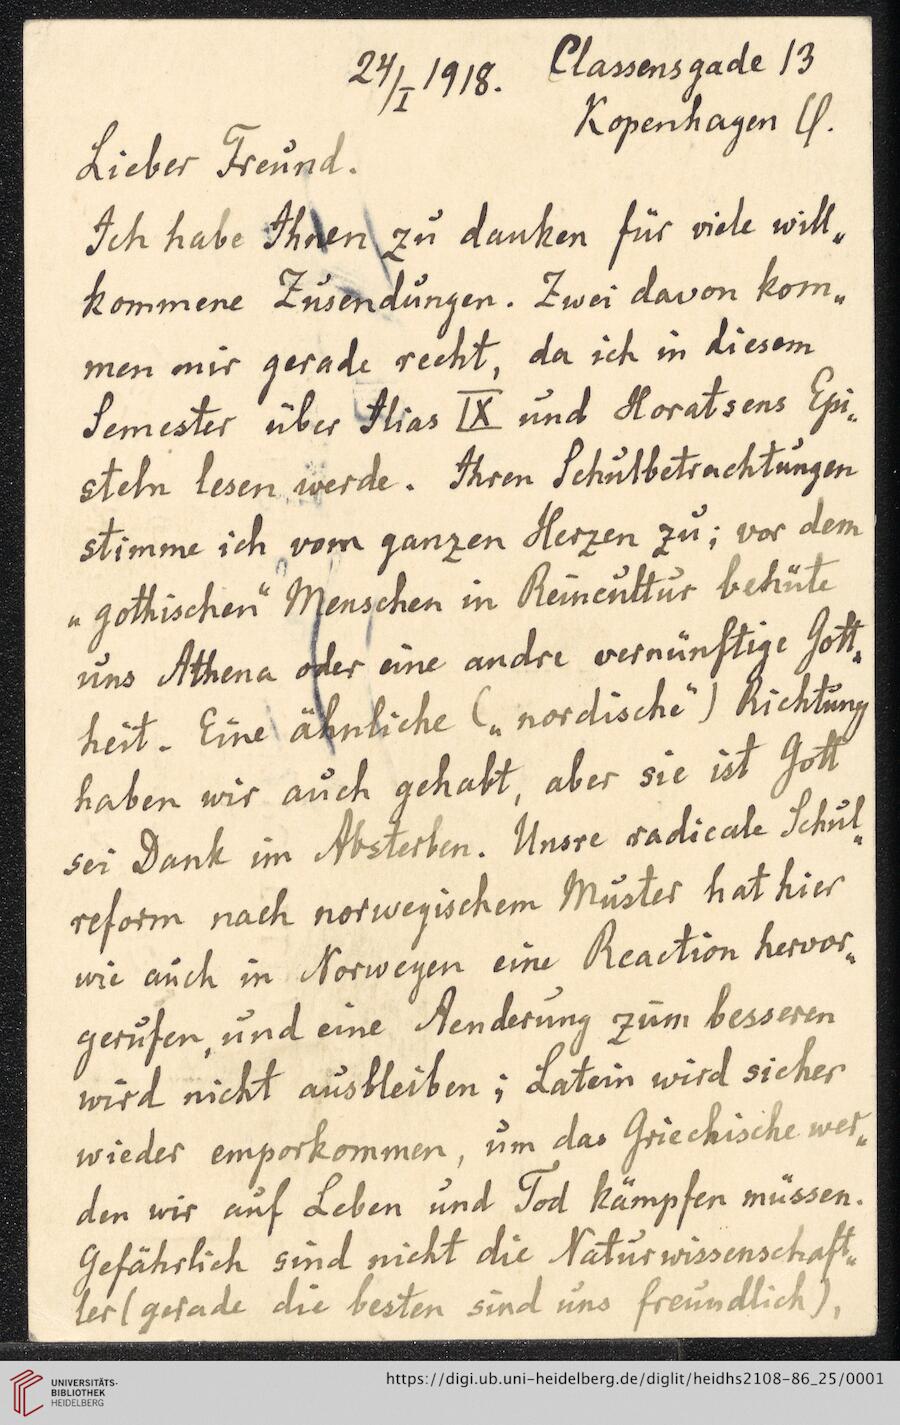 24/I 1918. Classensgade 13
Kopenhagen Ø.
Lieber Freund.
Ich habe Ihnen zu danken für viele will„
kommene Zusendungen. Zwei davon kom„
men mir gerade recht, da ich in diesem
Semester über Ilias IX und Horatsens Epi„
steln lesen werde. Ihren Schulbetrachtungen
stimme ich vom ganzen Herzen zu; vor dem
„gothischen“ Menschen in Reincultur behüte
uns Athena oder eine andre vernünftige Gott„
heit. Eine ähnliche („nordische“) Richtung
haben wir auch gehabt, aber sie ist Gott
sei Dank im Absterben. Unsre radicale Schul„
reform nach norwegischem Muster hat hier
wie auch in Norwegen eine Reaction hervor„
gerufen, und eine Aenderung zum besseren
wird nicht ausbleiben; Latein wird sicher
wieder emporkommen, um das Griechische wer„
den wir auf Leben und Tod kämpfen müssen.
Gefährlich sind nicht die Naturwissenschaft„
ler (gerade die besten sind uns freundlich),
UNIVERSITÄTS-
BIBLIOTHEK
HEIDELBERG
https://digi.ub.uni-heidelberg.de/diglit/heidhs2108-86_25/0001